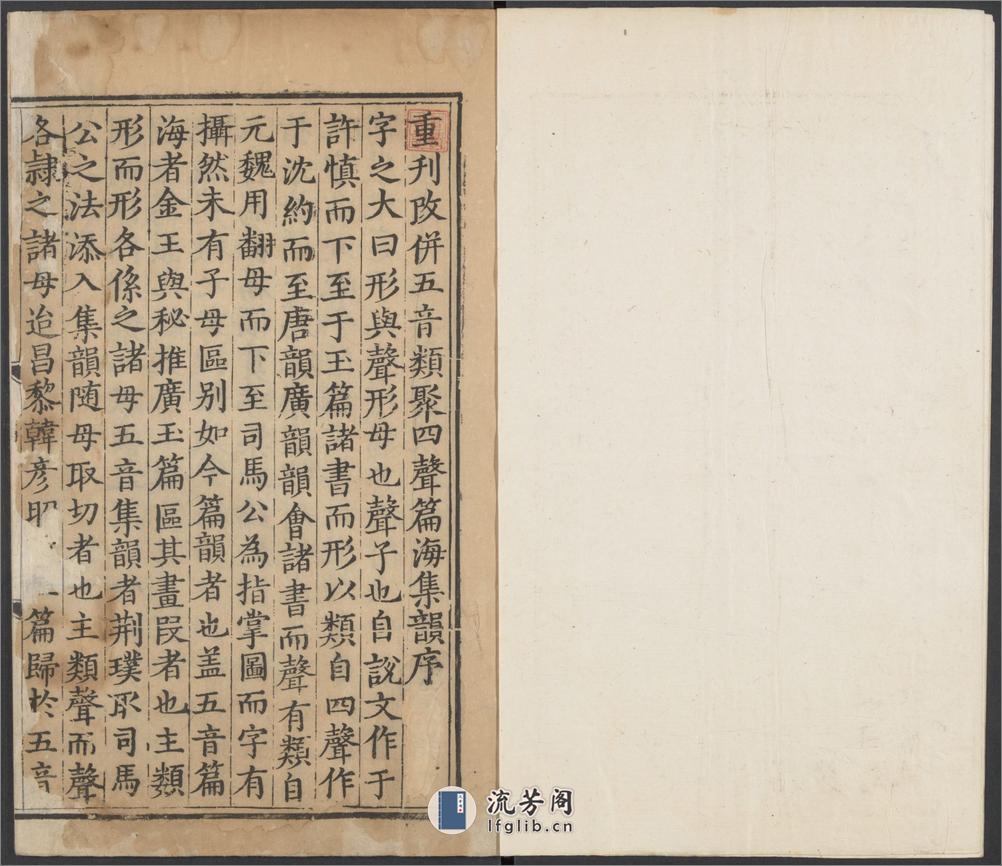 重刊改併五音類聚四聲篇海集韻序
字之大曰形與聲形母也聲子也自說文作于
許慎而下至于玉篇諸書而形以類自四聲作
于沈約而至唐韻廣韻韻會諸書而聲有類自
元魏用翻母而下至司馬公為指掌圖而字有
攝然未有子母區別如今篇韻者也盖五音篇
海者金王與秘推廣玉篇區其畫叚者也主類
形而形各係之諸母五音集韻者荆璞承司馬
公之法添入集韻随母取切者也主類聲而聲
各隷之諸母迨昌黎韓彦昭一篇歸於五音
流芳阁
lfglib.cn